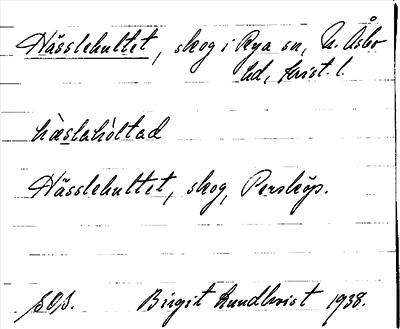 Hässlehultet, skog i Rya sn, N. Åsbo
hd, Krist. l.
hæ̀slahòltad
Hässlehultet, skog, Perstorp.
SOS. Birgit Lundkvist 1938.